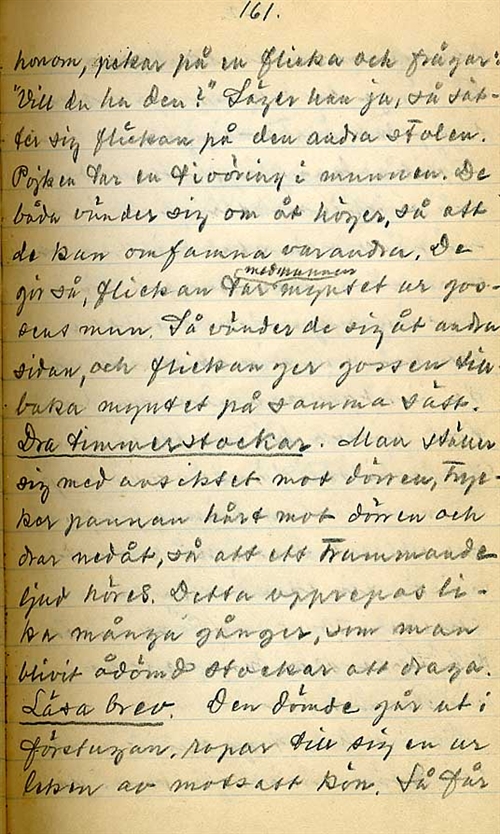 161.
honom, pekar på en flicka och frågar:
"Vill du ha den?" Säger han ja, så sät-
ter sig flickan på den andra stolen.
Pojken tar en tioöring i munnen. De
båda vänder sig om åt höger, så att
de kan omfamna varandra. De
med munnen
gör så, flickan tar myntet ur gos-
sens mun. Så vänder de sig åt andra
sidan, och flickan ger gossen till-
baka myntet på samma sätt.
Dra timmerstockar. Man ställer
sig med ansiktet mot dörren, tryc-
ker pannan hårt mot dörren och
drar nedåt, så att ett trummande
ljud höres. Detta upprepas li-
ka många gånger, som man
blivit ådömd stockar att draga.
Läsa brev. Den dömde går ut i
förstugan, ropar till sig en ur
leken av motsatt kön. Så får